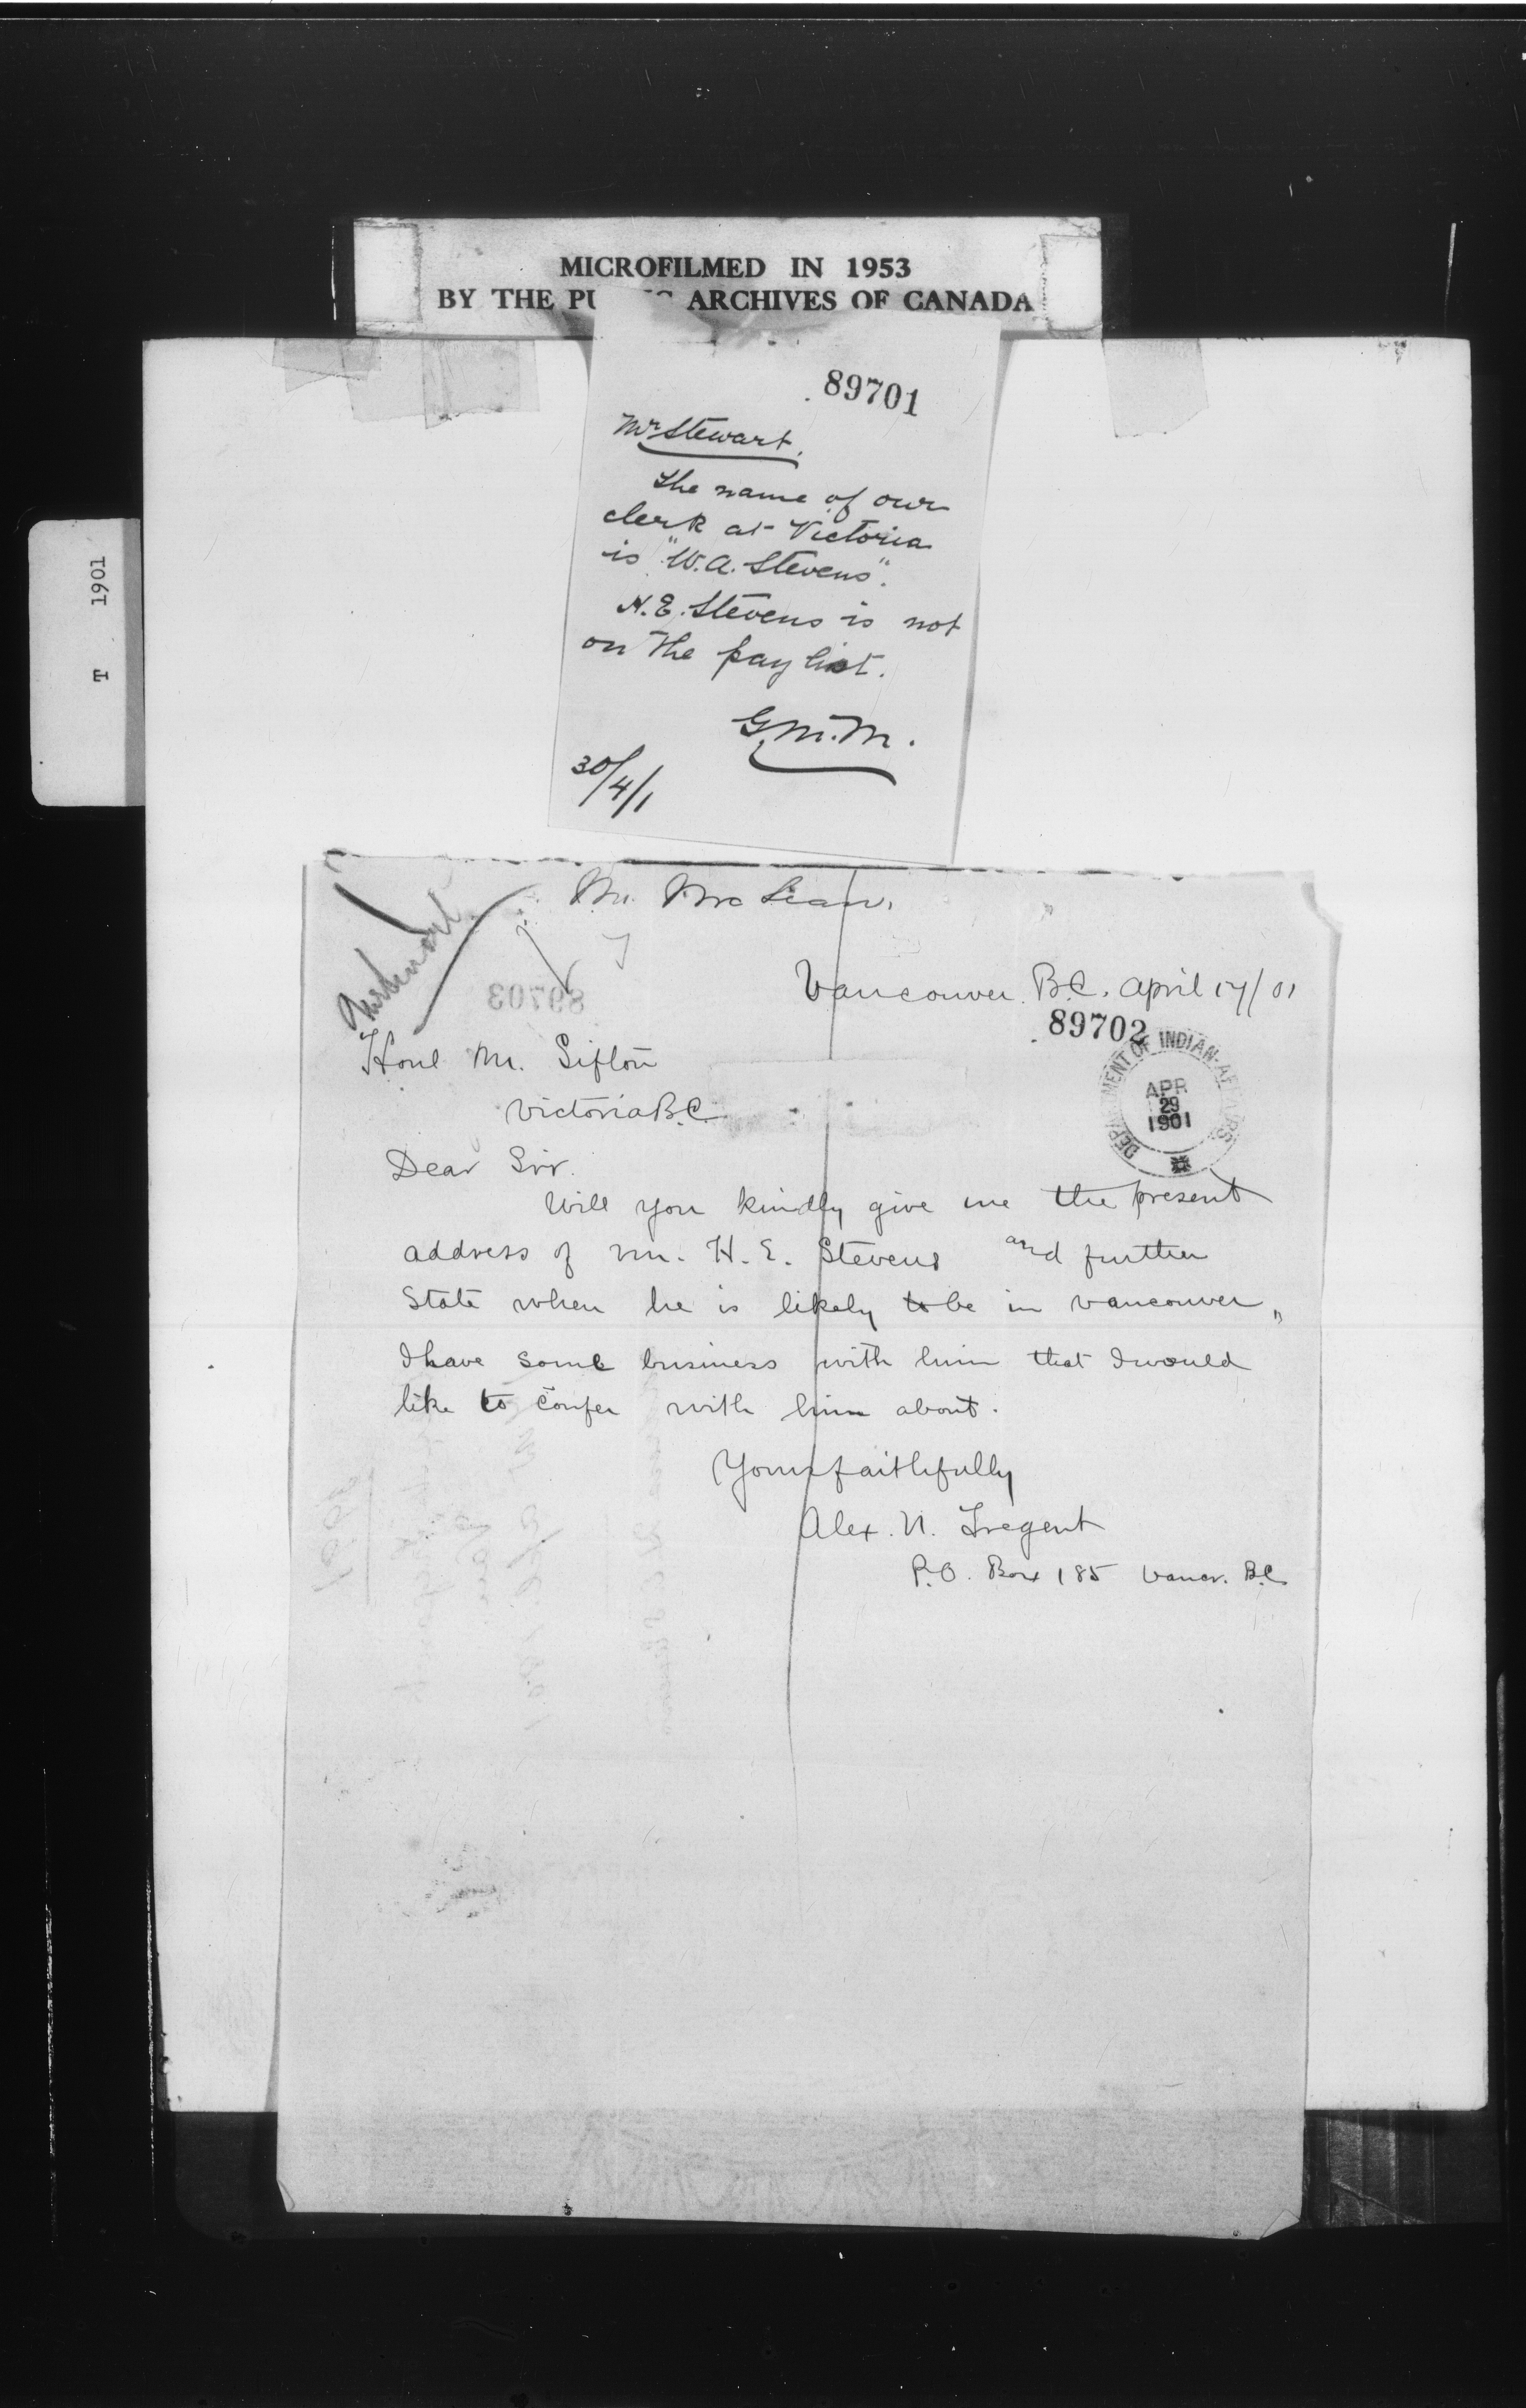 MICROFILMED IN 1953
BY THE PU IC ARCHIVES OF CANADA
T 1901
89701
Mr Stewart.
The name of our
clerk at Victoria
is "W.A. Stevens".
H.E. Stevens is not
on the pay list.
G.M.M.
30/4/1
Mr. McLean.
89703
Vancouver. B.C. April 17/01
89702
DEPARTMENT OF INDIAN AFFAIRS
APR
29
1901
Honl Mr. Sifton
Victoria B.C.
Dear Sir.
Will you kindly give me the present
address of Mr. H. E. Stevens and further
State when he is likely to be in Vancouver,,
I have some business with him that I would
like to confer with him about.
Yours faithfully
Alex. N. Tregent
P.O. Box 185 Vancr. B.C.